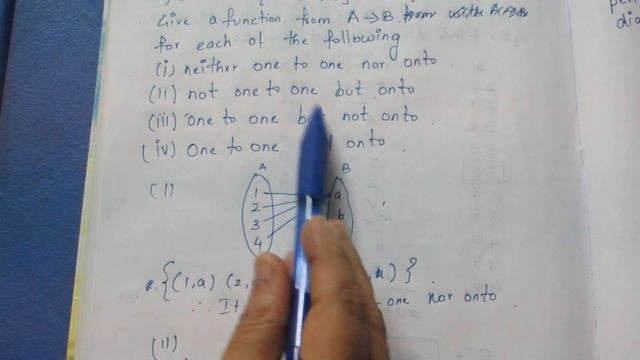 Give a function from A→B from with
for each of the following
(i) neither one to one nor onto.
(ii) not one to one but onto
(iii) one to one but not onto
(iv) one to one onto.
(I)
A B
1 a
2 b
3
4
R. {(1,a) (2, ) }.
∴ It -one nor onto.
(II)